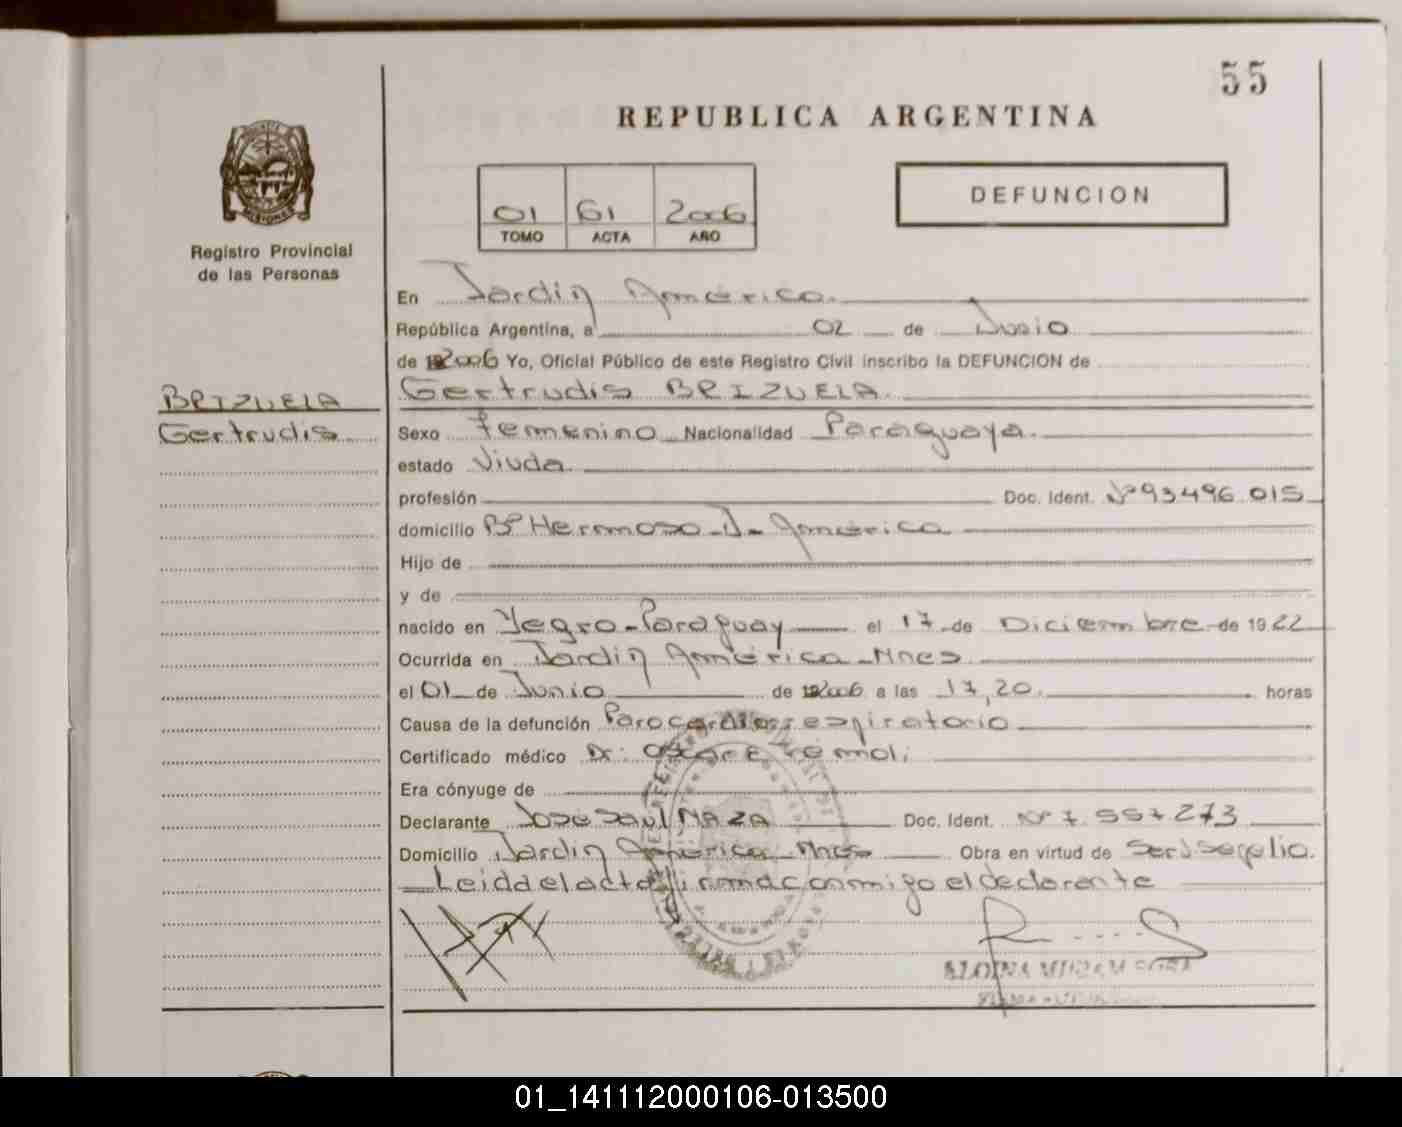 55
REPUBLICA ARGENTINA
DEFUNCION
01 61 2006
TOMO ACTA AÑO
MISIONES
Registro Provincial
de las Personas
BRIZUELA
Gertrudis
En Jardín América.
República Argentina, a 02 de Junio
de 2006 Yo, Oficial Público de este Registro Civil inscribo la DEFUNCION de
Gertrudis BRIZUELA
Sexo femenino Nacionalidad Paraguaya.
estado Viuda
profesión Doc. Ident. Nº 93496.015
domicilio Bº Hermoso - J- América
Hijo de
y de
nacido en Yegro - Paraguay el 17 de Diciembre de 1922
Ocurrida en Jardín América - Mnes
el 01 de Junio de 2006 a las 17,20. horas
Causa de la defunción Parocardiorrespiratorio
Certificado médico Dr:
Era cónyuge de
Declarante José Saul MAZA Doc. Ident. Nº 7.557273
Domicilio Jardín América - Mnes Obra en virtud de
Leida el acta firma conmigo el declarante
01_141112000106-013500